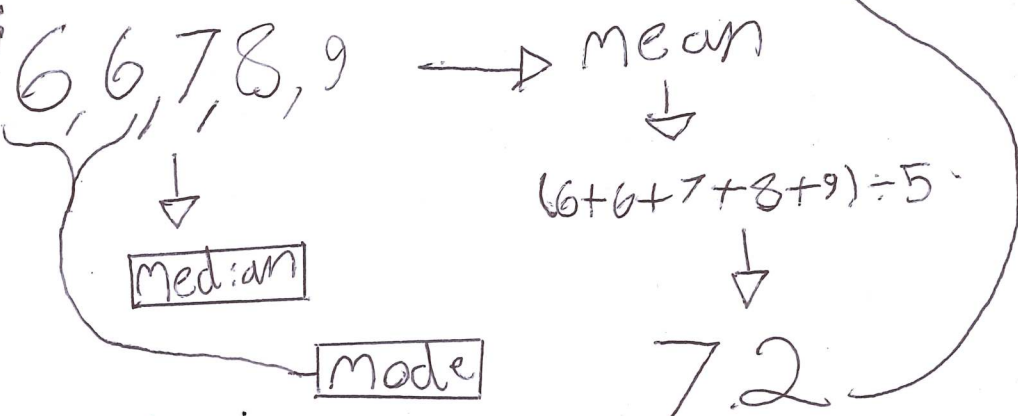 6, 6, 7, 8, 9 → mean
(6+6+7+8+9)÷5
Median
Mode
7.2